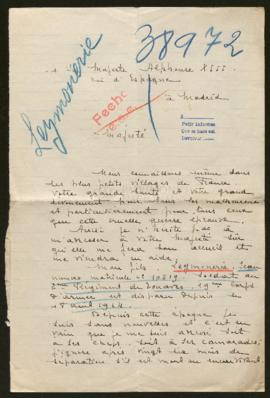 Leymonerie
38972
Majesté Alphonse XIII
roi d'Espagne
à Madrid
Fecho
Pedir informes
Majesté
Nous connaissons même dans
les plus petits villages de France
votre grande bonté et votre grand
dévouement pour tous les malheureux
et particulièrement pour tous ceux
que cette cruelle guerre éprouve.
Aussi je n'hésite pas à
m'adresser à votre Majesté sûr
qu'elle me fera bon accueil et
me viendra en aide.
Mon fils Leymonerie Jean
numéro matricule n° soldat au
2me Régiment de Zouaves, 19me Corps
d'armée est disparu depuis
1914.
Depuis cette époque je
suis sans nouvelles et c'est en
vain que je me suis adressé, soit
à ses chefs, soit à ses camarades.
J'ignore après vingt six mois de
séparation s'il est mort ou encore vivant.